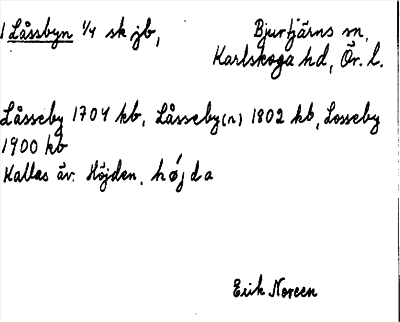 1 Låssbyn 1/4 sk jb, Bjurtjärns sn,
Karlskoga hd, Ör. l.
Låsseby 1704 kb, Låsseby(n) 1802 kb, Losseby
1900 kb
Kallas äv. Höjden. høj da
Erik Noreen